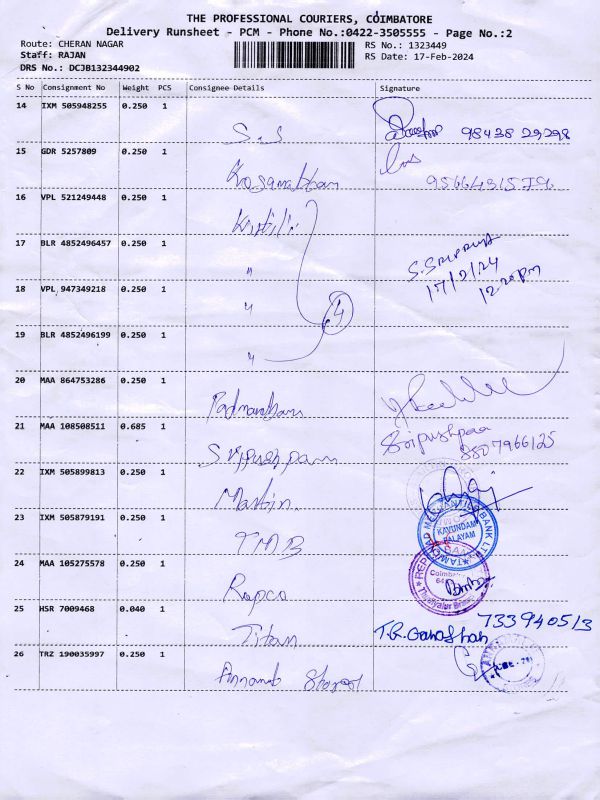 THE PROFESSIONAL COURIERS, COIMBATORE
Delivery Runsheet - PCM - Phone No.:0422-3505555 - Page No.:2
Route: CHERAN NAGAR RS No.: 1323449
Staff: RAJAN RS Date: 17-Feb-2024
DRS No.: DCJB132344902
S No Consignment No Weight PCS Consignee Details Signature
14 IXM 505948255 0.250 1
S.S 98438 29298
15 GDR 5257809 0.250 1
16 VPL 521249448 0.250 1
17 BLR 4852496457 0.250 1
" S.SRIPRIYA
17/2/24
18 VPL 947349218 0.250 1
" 4
19 BLR 4852496199 0.250 1
"
20 MAA 864753286 0.250 1
21 MAA 108508511 0.685 1
Sripushpaa
8807966125
22 IXM 505899813 0.250 1
Martin.
23 IXM 505879191 0.250 1
TMB TAMILNAD MERCANTILE BANK LTD KAVUNDAM PALAYAM
24 MAA 105275578 0.250 1
Repco Thudiyalur Branch
25 HSR 7009468 0.040 1
Titan 733940513
26 TRZ 190035997 0.250 1